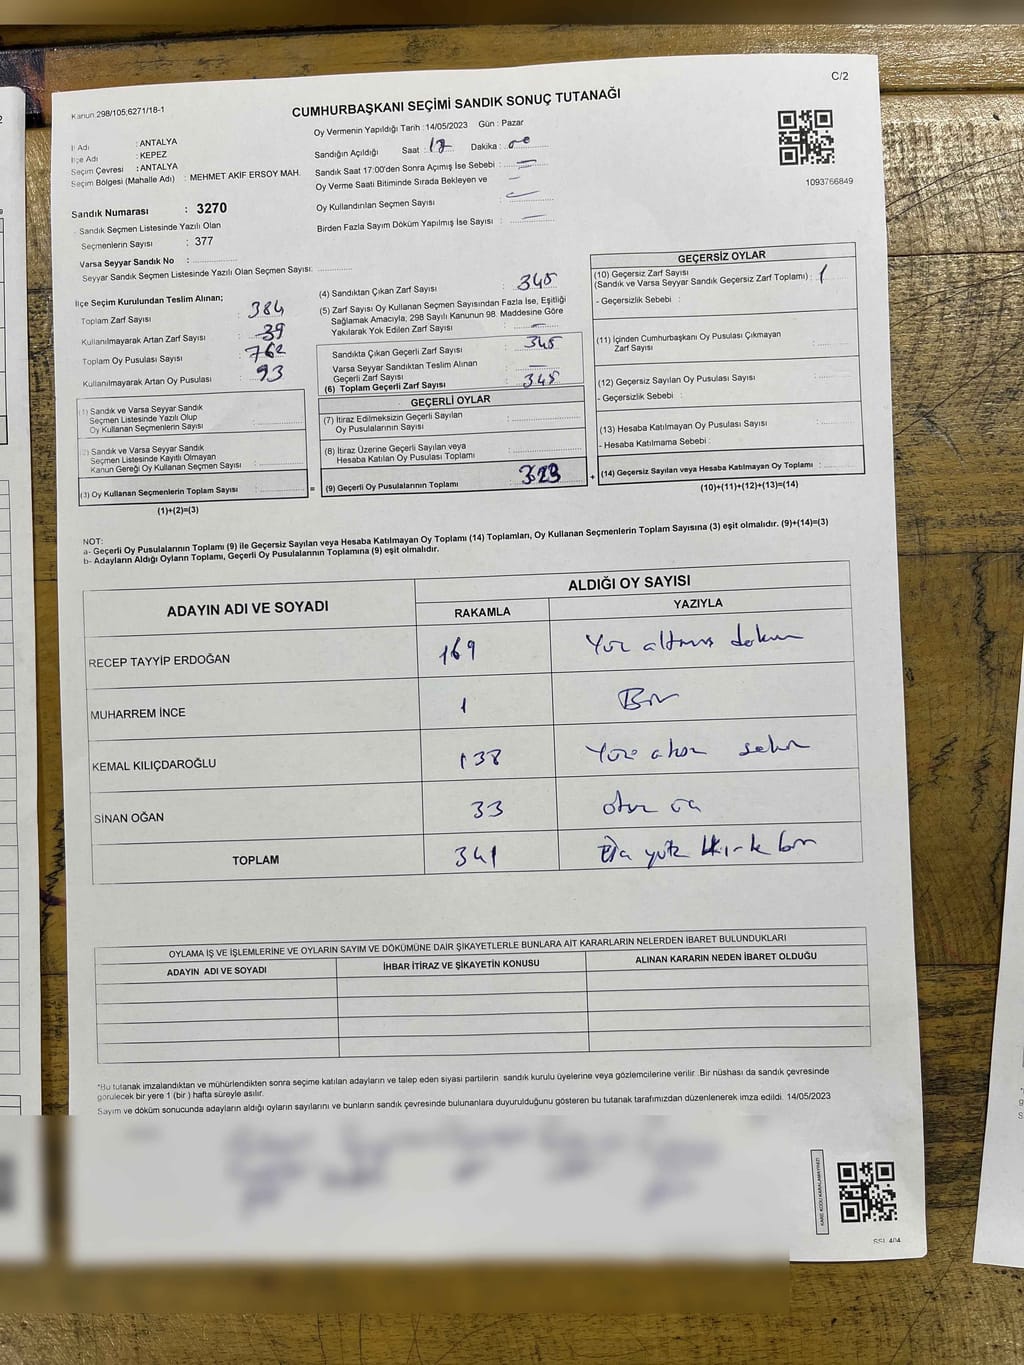 C/2
Kanun 298/105;6271/18-1
CUMHURBAŞKANI SEÇİMİ SANDIK SONUÇ TUTANAĞI
Oy Vermenin Yapıldığı Tarih : 14/05/2023 Gün : Pazar
İl Adı : ANTALYA
İlçe Adı : KEPEZ
Seçim Çevresi : ANTALYA
Seçim Bölgesi (Mahalle Adı) : MEHMET AKİF ERSOY MAH.
Sandığın Açıldığı Saat : Dakika :
Sandık Saat 17:00'den Sonra Açımış İse Sebebi :
Oy Verme Saati Bitiminde Sırada Bekleyen ve
Oy Kullandırılan Seçmen Sayısı :
Birden Fazla Sayım Döküm Yapılmış İse Sayısı :
1093766849
Sandık Numarası : 3270
Sandık Seçmen Listesinde Yazılı Olan
Seçmenlerin Sayısı : 377
Varsa Seyyar Sandık No :
Seyyar Sandık Seçmen Listesinde Yazılı Olan Seçmen Sayısı:
İlçe Seçim Kurulundan Teslim Alınan;
Toplam Zarf Sayısı : 384
Kullanılmayarak Artan Zarf Sayısı : 39
Toplam Oy Pusulası Sayısı : 762
Kullanılmayarak Artan Oy Pusulası : 93
(1) Sandık ve Varsa Seyyar Sandık
Seçmen Listesinde Yazılı Olup
Oy Kullanan Seçmenlerin Sayısı :
(2) Sandık ve Varsa Seyyar Sandık
Seçmen Listesinde Kayıtlı Olmayan
Kanun Gereği Oy Kullanan Seçmen Sayısı :
(3) Oy Kullanan Seçmenlerin Toplam Sayısı :
(1)+(2)=(3)
=
(4) Sandıktan Çıkan Zarf Sayısı : 345
(5) Zarf Sayısı Oy Kullanan Seçmen Sayısından Fazla İse, Eşitliği
Sağlamak Amacıyla, 298 Sayılı Kanunun 98. Maddesine Göre
Yakılarak Yok Edilen Zarf Sayısı :
Sandıkta Çıkan Geçerli Zarf Sayısı : 345
Varsa Seyyar Sandıktan Teslim Alınan
Geçerli Zarf Sayısı :
(6) Toplam Geçerli Zarf Sayısı : 345
GEÇERLİ OYLAR
(7) İtiraz Edilmeksizin Geçerli Sayılan
Oy Pusulalarının Sayısı :
(8) İtiraz Üzerine Geçerli Sayılan veya
Hesaba Katılan Oy Pusulası Toplamı :
(9) Geçerli Oy Pusulalarının Toplamı :
+
GEÇERSİZ OYLAR
(10) Geçersiz Zarf Sayısı
(Sandık ve Varsa Seyyar Sandık Geçersiz Zarf Toplamı) : 1
- Geçersizlik Sebebi :
(11) İçinden Cumhurbaşkanı Oy Pusulası Çıkmayan
Zarf Sayısı :
(12) Geçersiz Sayılan Oy Pusulası Sayısı :
- Geçersizlik Sebebi :
(13) Hesaba Katılmayan Oy Pusulası Sayısı :
- Hesaba Katılmama Sebebi :
(14) Geçersiz Sayılan veya Hesaba Katılmayan Oy Toplamı :
(10)+(11)+(12)+(13)=(14)
NOT:
a- Geçerli Oy Pusulalarının Toplamı (9) ile Geçersiz Sayılan veya Hesaba Katılmayan Oy Toplamı (14) Toplamları, Oy Kullanan Seçmenlerin Toplam Sayısına (3) eşit olmalıdır. (9)+(14)=(3)
b- Adayların Aldığı Oyların Toplamı, Geçerli Oy Pusulalarının Toplamına (9) eşit olmalıdır.
ADAYIN ADI VE SOYADI ALDIĞI OY SAYISI
RAKAMLA YAZIYLA
RECEP TAYYİP ERDOĞAN 169 Yüz altmış dokuz
MUHARREM İNCE 1 Bir
KEMAL KILIÇDAROĞLU 138 Yüz otuz sekiz
SİNAN OĞAN 33 otuz üç
TOPLAM 341 Üç yüz kırk bir
OYLAMA İŞ VE İŞLEMLERİNE VE OYLARIN SAYIM VE DÖKÜMÜNE DAİR ŞİKAYETLERLE BUNLARA AİT KARARLARIN NELERDEN İBARET BULUNDUKLARI
ADAYIN ADI VE SOYADI İHBAR İTİRAZ VE ŞİKAYETİN KONUSU ALINAN KARARIN NEDEN İBARET OLDUĞU
*Bu tutanak imzalandıktan ve mühürlendikten sonra seçime katılan adayların ve talep eden siyasi partilerin sandık kurulu üyelerine veya gözlemcilerine verilir .Bir nüshası da sandık çevresinde
görülecek bir yere 1 (bir ) hafta süreyle asılır.
Sayım ve döküm sonucunda adayların aldığı oyların sayılarını ve bunların sandık çevresinde bulunanlara duyurulduğunu gösteren bu tutanak tarafımızdan düzenlenerek imza edildi. 14/05/2023